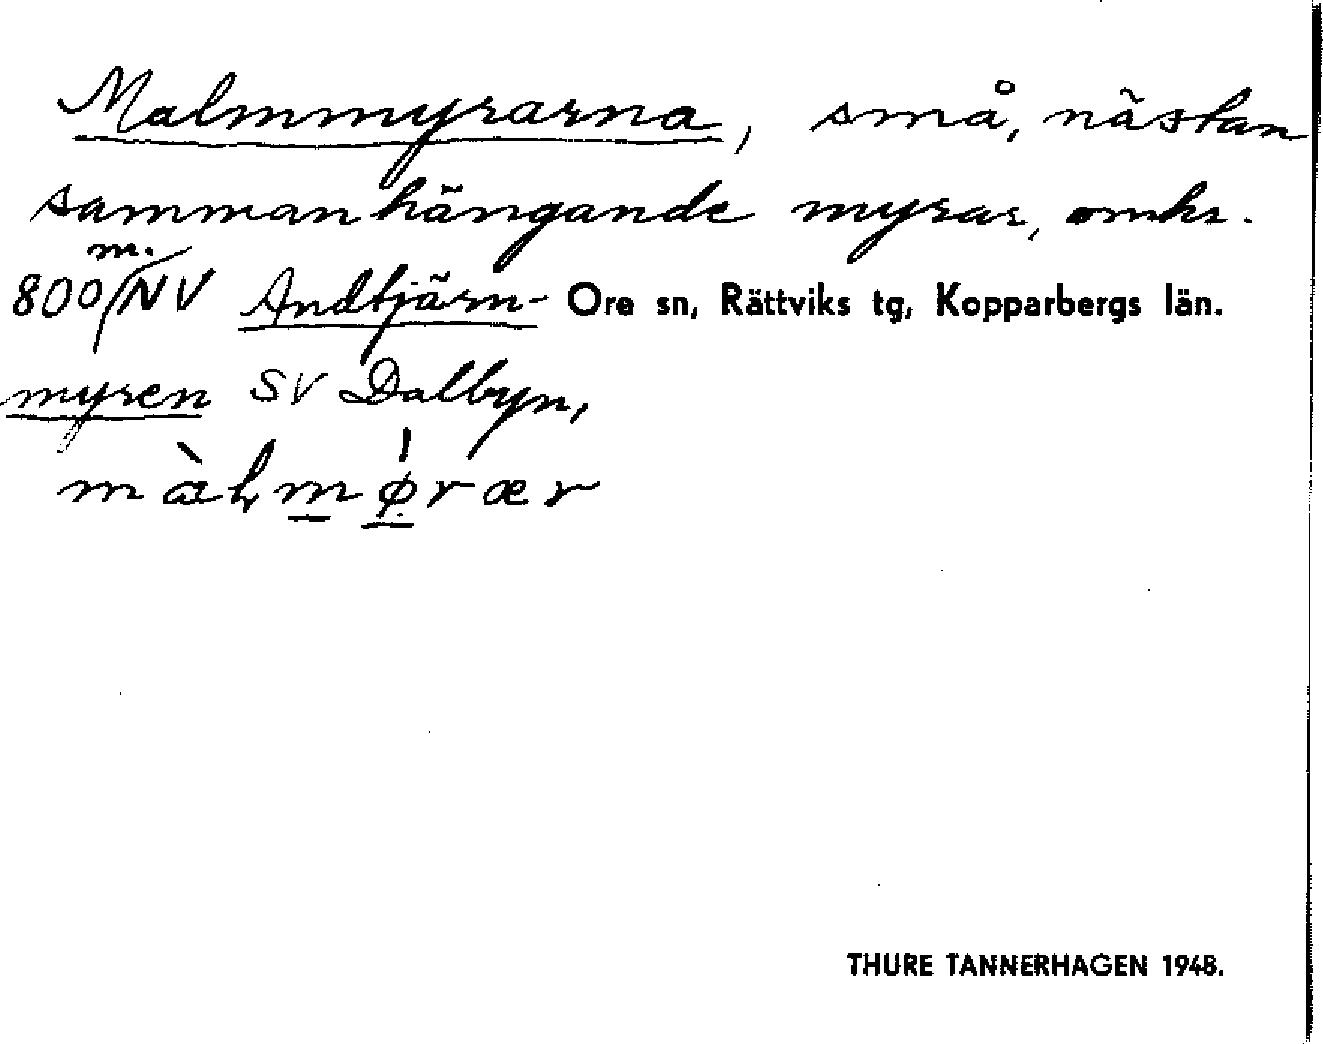 Malmmyrarna, små, nästan
sammanhängande myrar, omkr.
800 m. NV Andtjärn- Ore sn, Rättviks tg, Kopparbergs län.
myren SV Dalbyn,
THURE TANNERHAGEN 1948.